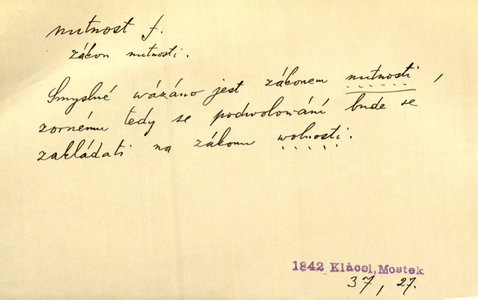 nutnost f.
zákon nutnosti.
Smyslné wázáno jest zákonem nutnosti,
zornému tedy se podwolowání bude se
zakládati na zákonu wolnosti.
1842 Klácel, Mostek
37, 27.